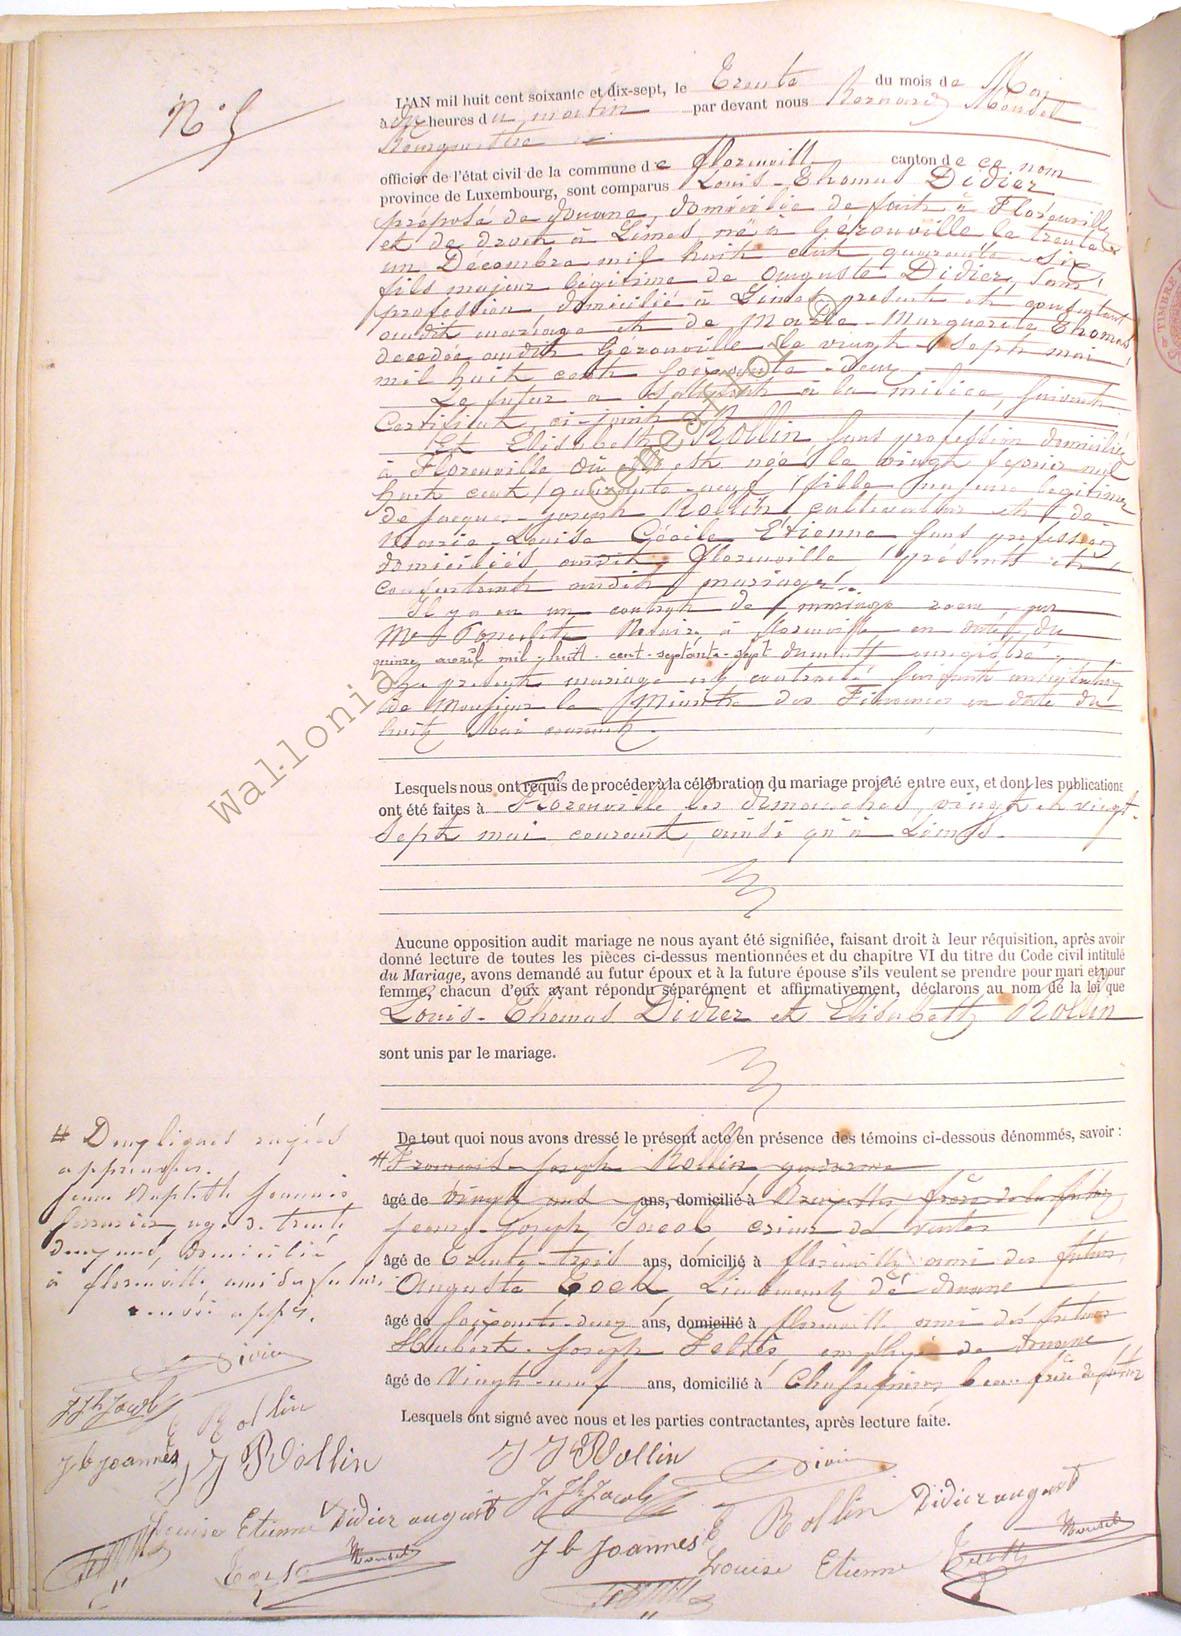 N° 5
L'AN mil huit cent soixante et dix-sept, le Trente du mois de Mai
à dix heures du matin par devant nous Bernard Mondet
Bourgmestre
officier de l'état civil de la commune de florenville canton de ce nom
province de Luxembourg, sont comparus Louis-Thomas Didier
préposé de douane, domicilié de fait à Florenville
et de droit à Limes, né à Gérouville le trente
un Décembre mil huit cent quarante-six,
fils majeur légitime de Auguste Didier, sans
profession domicilié à Limes présent et consentant
audit mariage et de Marie-Marguerite Thomas
décédée audit Gérouville le vingt-sept mai
mil huit cent soixante-deux.
Le futur a satisfait à la milice, suivant
Certificat ci-joint
Et Elisabeth Rollin, sans profession domiciliée
à Florenville où elle est née le vingt février mil
huit cent quarante-neuf, fille majeure légitime
de Jacques-Joseph Rollin, cultivateur et de
Marie-Louise Cécile Etienne sans profession
domiciliés audit florenville, présents et
consentant audit mariage.
Il y a eu un contrat de mariage reçu par
Me Notaire à florenville en date du
quinze avril mil-huit-cent-septante-sept dument enregistré,
Le présent mariage est contracté suivant autorisation
de Monsieur le Ministre des Finances en date du
huit Mai courant.
Lesquels nous ont requis de procéder à la célébration du mariage projeté entre eux, et dont les publications
ont été faites à Florenville les dimanches, vingt et vingt-
sept mai courant, ainsi qu'à Limes.
Aucune opposition audit mariage ne nous ayant été signifiée, faisant droit à leur réquisition, après avoir
donné lecture de toutes les pièces ci-dessus mentionnées et du chapitre VI du titre du Code civil intitulé
du Mariage, avons demandé au futur époux et à la future épouse s'ils veulent se prendre pour mari et pour
femme, chacun d'eux ayant répondu séparément et affirmativement, déclarons au nom de la loi que
Louis-Thomas Didier et Elisabeth Rollin
sont unis par le mariage.
De tout quoi nous avons dressé le présent acte en présence des témoins ci-dessous dénommés, savoir :
# François-Joseph Rollin gendarme
âgé de vingt neuf ans, domicilié à Bruxelles frère de la future
Jean-Joseph Jacob, crieur de ventes
âgé de Trente-trois ans, domicilié à florenville ami des futurs,
Auguste Lieutenant de douane
âgé de soixante-deux ans, domicilié à florenville ami des futurs
Hubert-Joseph employé de douane
âgé de Vingt-neuf ans, domicilié à beau frère du futur
Lesquels ont signé avec nous et les parties contractantes, après lecture faite.
# Deux lignes rayées
approuvées.
Jean Baptiste Joannès
âgé de trente
deux ans, domicilié
à florenville ami des futurs
renvoi appr.
Didier
J Jh Jacob
E Rollin
J b Joannès
J J Rollin
Louise Etienne Didier august
Mondet
J J Rollin
Didier
J. Jh Jacob
E Rollin Didier august
J b Joannès
Louise Etienne
Mondet
Wal-lonia
Geneanet
TIMBRE